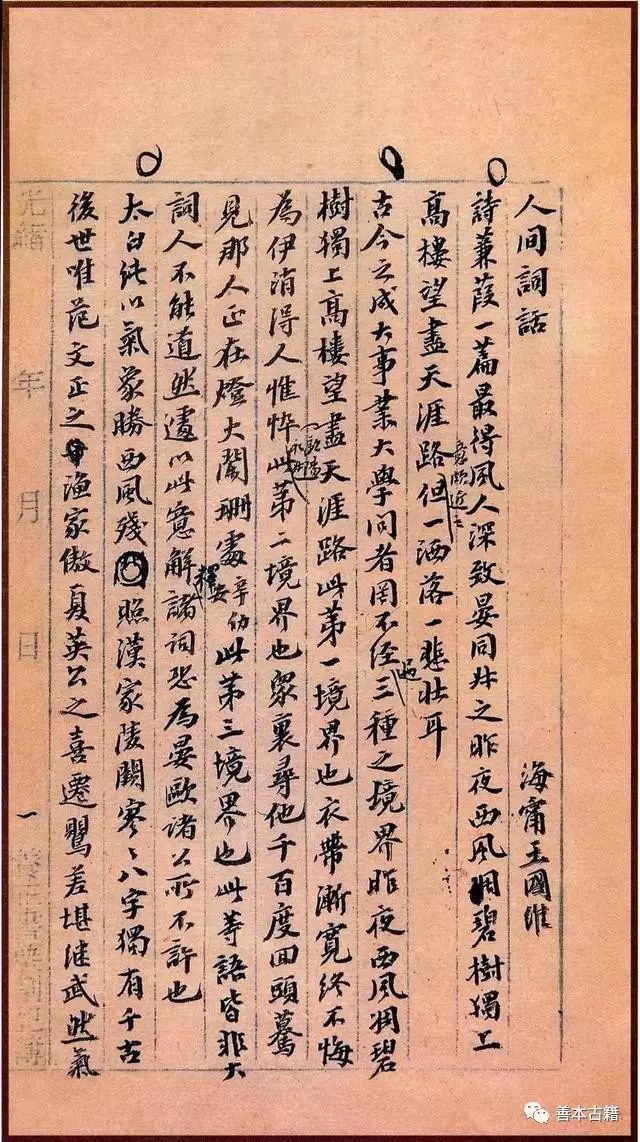 人间詞話 海甯王國維
詩蒹葭一篇最得風人深致晏同叔之昨夜西風凋碧樹獨上
高樓望盡天涯路意頗近之但一洒落一悲壯耳
古今之成大事業大學問者罔不經過三種之境界昨夜西風凋碧
樹獨上高樓望盡天涯路此第一境界也衣帶漸寬終不悔
為伊消得人憔悴歐陽永叔此第二境界也眾裏尋他千百度回頭驀
見那人正在燈火闌珊處辛幼安此第三境界也此等語皆非大
詞人不能道然遽以此意解釋諸詞恐為晏歐諸公所不許也
太白純以氣象勝西風殘照漢家陵闕寥寥八字獨有千古
後世唯范文正之漁家傲夏英公之喜遷鶯差堪继武然氣
光緒 年 月 日 一
善本古籍